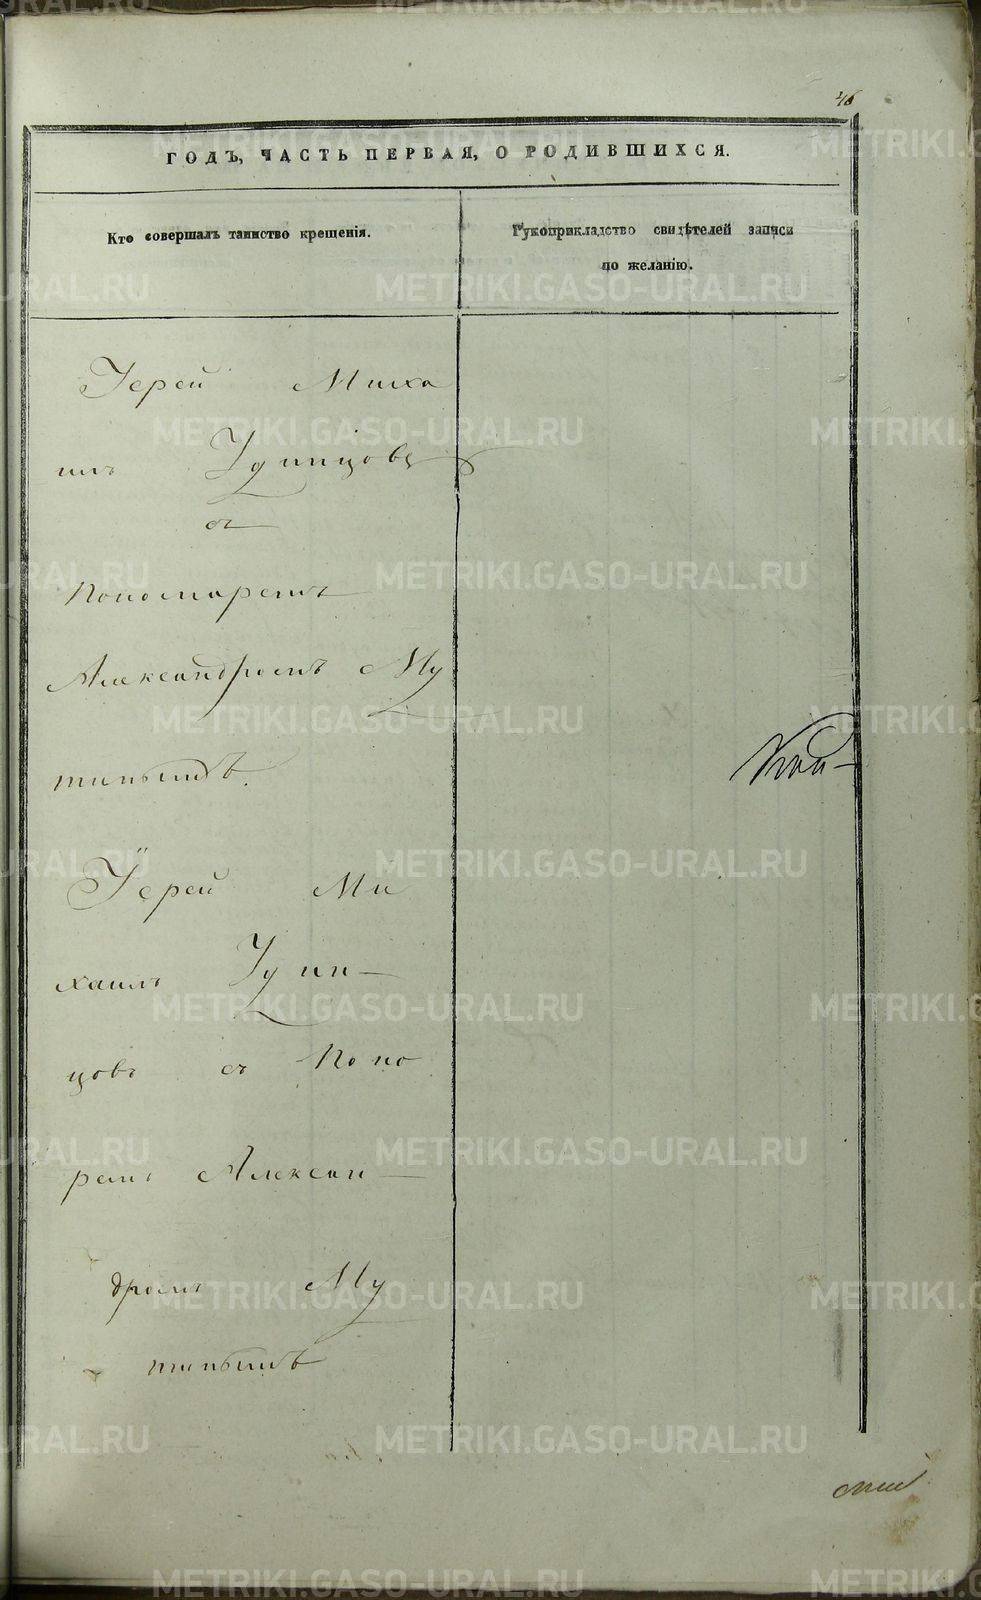 46
ГОДЪ, ЧАСТЬ ПЕРВАЯ, О РОДИВШИХСЯ.
Кто совершалъ таинство крещенія.
Рукоприкладство свидѣтелей записи
по желанію.
Іерей Миха
илъ Удинцовъ
съ
Пономаремъ
Александромъ Му
тинымъ.
Іерей Ми
хаилъ Удин-
цовъ съ Поно
ремъ Алексан-
дромъ Му
тинымъ
METRIKI.GASO-URAL.RU